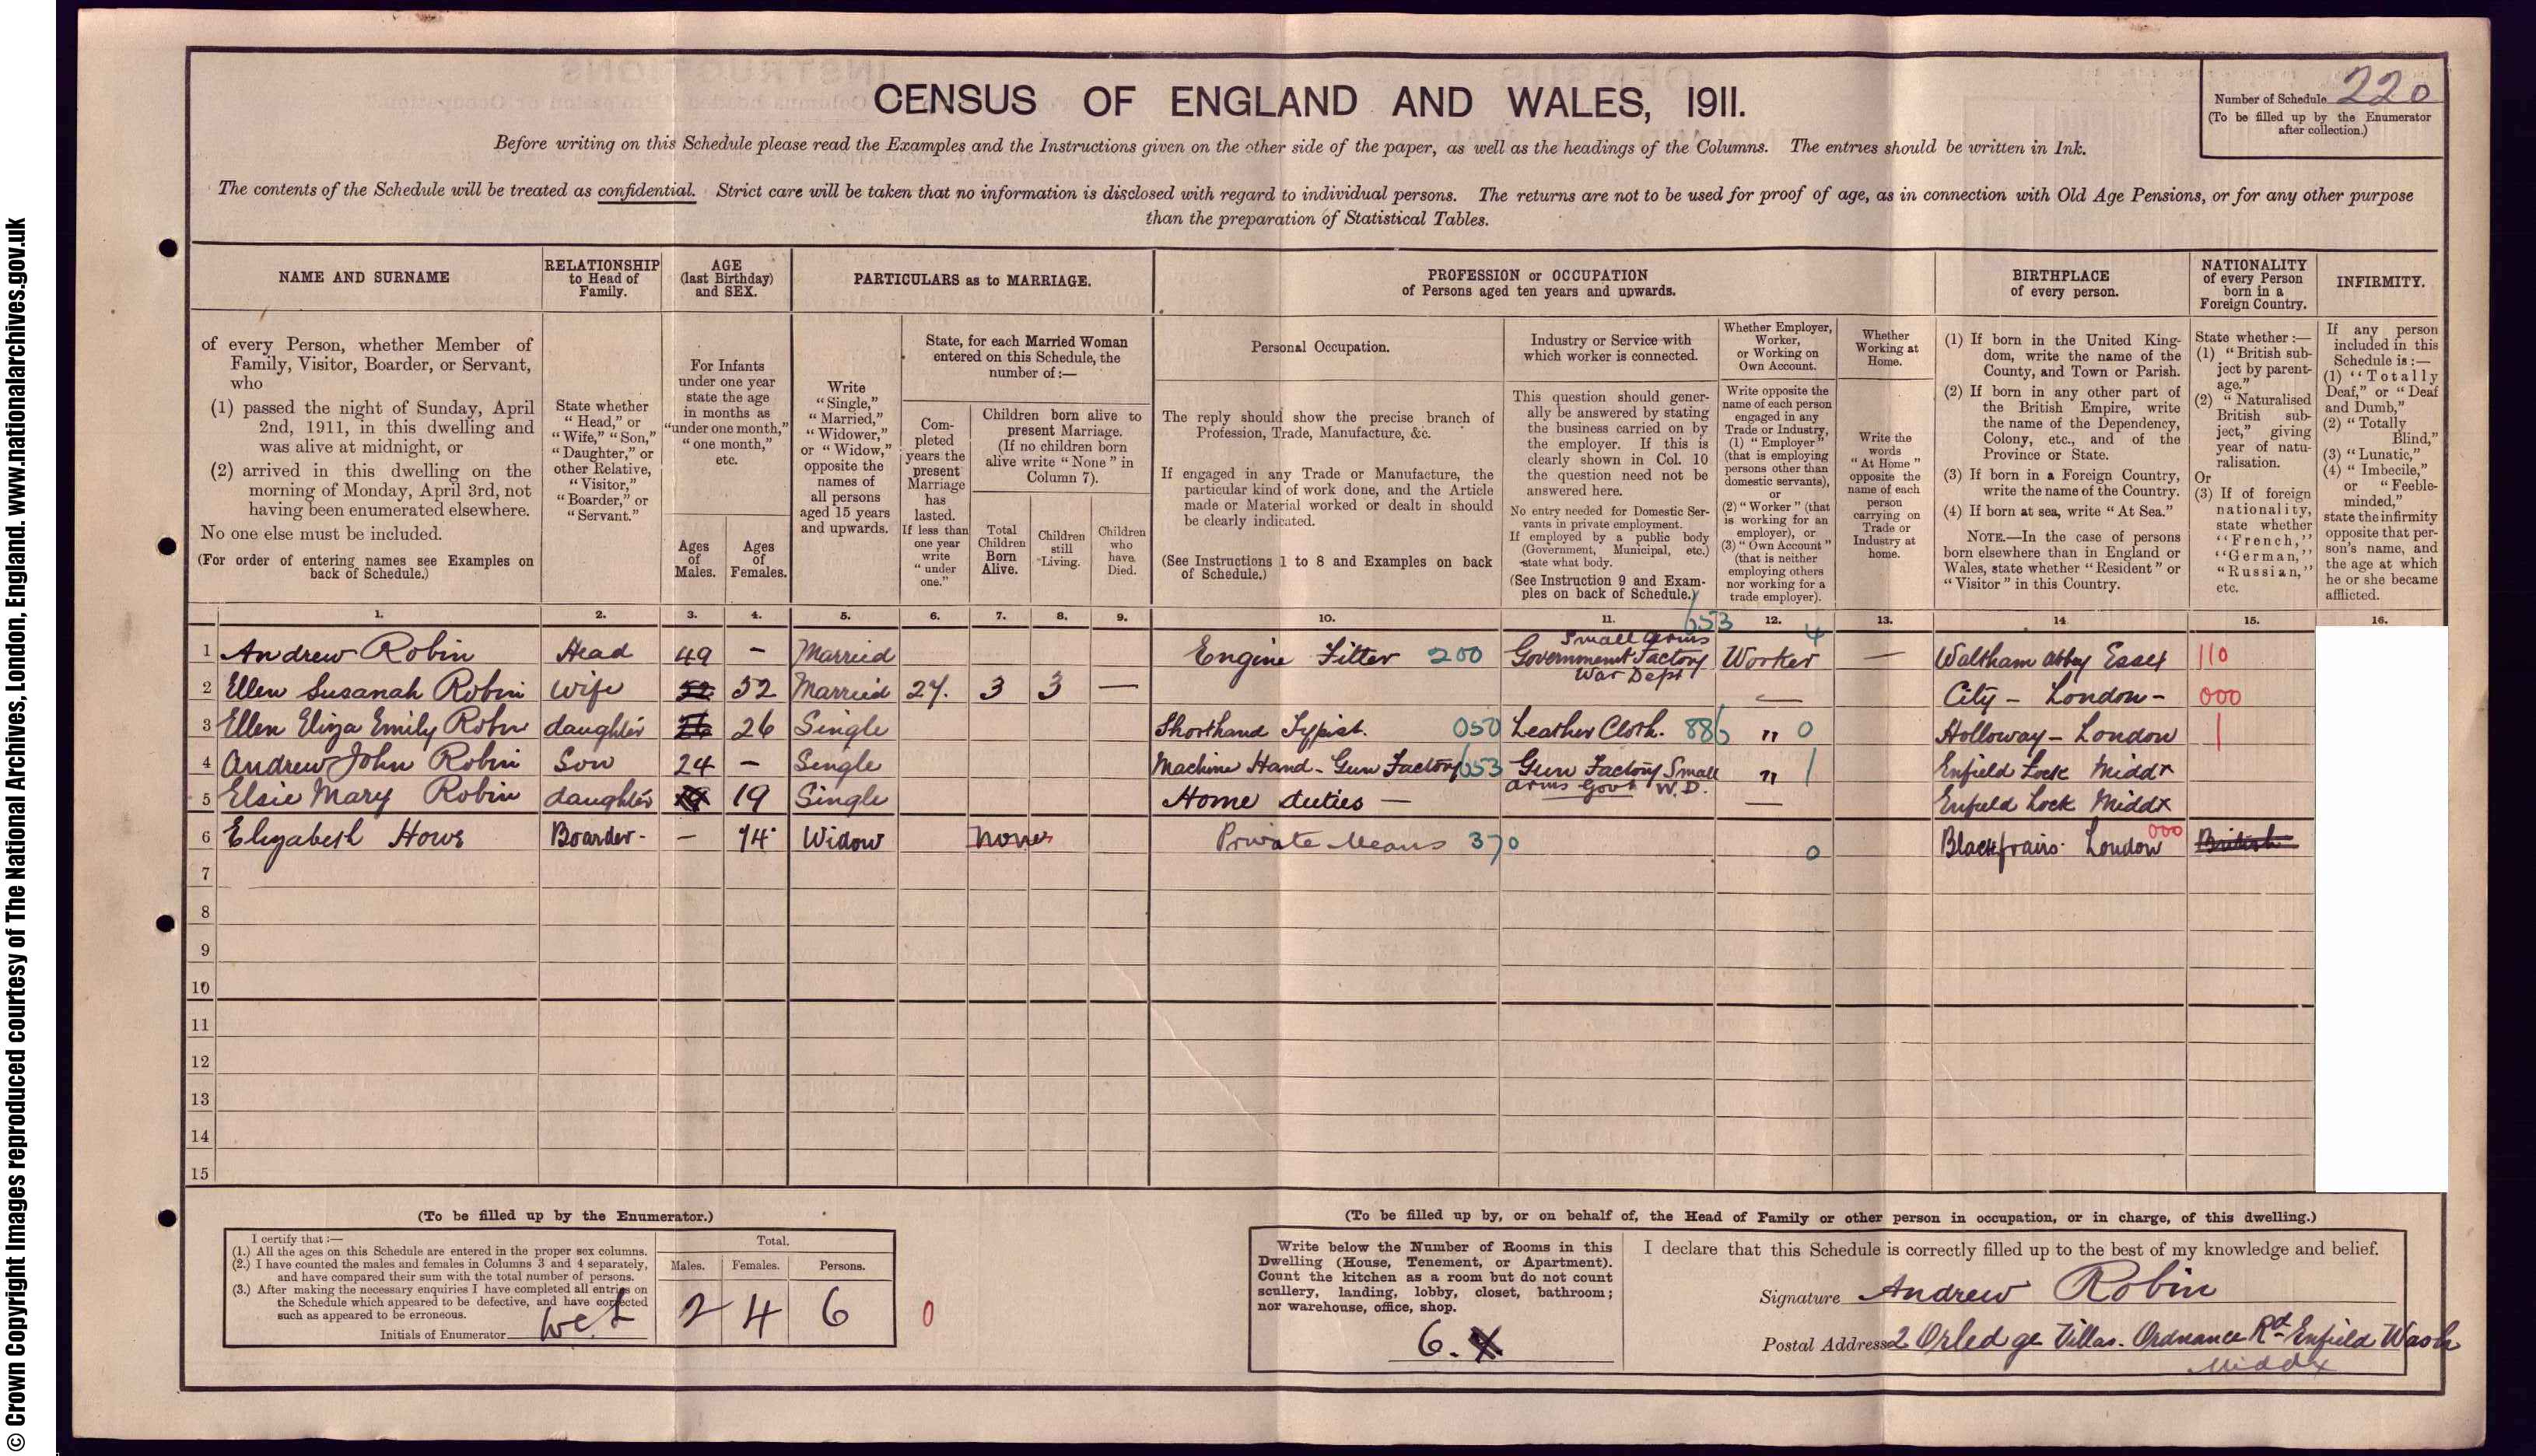 © Crown Copyright Images reproduced courtesy of The National Archives, London, England. www.nationalarchives.gov.uk
CENSUS OF ENGLAND AND WALES, 1911.
Number of Schedule 220
(To be filled up by the Enumerator
after collection.)
Before writing on this Schedule please read the Examples and the Instructions given on the other side of the paper, as well as the headings of the Columns. The entries should be written in Ink.
The contents of the Schedule will be treated as confidential. Strict care will be taken that no information is disclosed with regard to individual persons. The returns are not to be used for proof of age, as in connection with Old Age Pensions, or for any other purpose
than the preparation of Statistical Tables.
NAME AND SURNAME
of every Person, whether Member of
Family, Visitor, Boarder, or Servant,
who
(1) passed the night of Sunday, April
2nd, 1911, in this dwelling and
was alive at midnight, or
(2) arrived in this dwelling on the
morning of Monday, April 3rd, not
having been enumerated elsewhere.
No one else must be included.
(For order of entering names see Examples on
back of Schedule.)
RELATIONSHIP
to Head of
Family.
State whether
"Head," or
"Wife," "Son,"
"Daughter," or
other Relative,
"Visitor,"
"Boarder," or
"Servant."
AGE
(last Birthday)
and SEX.
For Infants
under one year
state the age
in months as
"under one month,"
"one month,"
etc.
Ages
of
Males.
Ages
of
Females.
PARTICULARS as to MARRIAGE.
Write
"Single,"
"Married,"
"Widower,"
or "Widow,"
opposite the
names of
all persons
aged 15 years
and upwards.
State, for each Married Woman
entered on this Schedule, the
number of:—
Com-
pleted
years the
present
Marriage
has
lasted.
If less than
one year
write
"under
one."
Children born alive to
present Marriage.
(If no children born
alive write "None" in
Column 7).
Total
Children
Born
Alive.
Children
still
Living.
Children
who
have
Died.
PROFESSION or OCCUPATION
of Persons aged ten years and upwards.
Personal Occupation.
The reply should show the precise branch of
Profession, Trade, Manufacture, &c.
If engaged in any Trade or Manufacture, the
particular kind of work done, and the Article
made or Material worked or dealt in should
be clearly indicated.
(See Instructions 1 to 8 and Examples on back
of Schedule.)
Industry or Service with
which worker is connected.
This question should gener-
ally be answered by stating
the business carried on by
the employer. If this is
clearly shown in Col. 10
the question need not be
answered here.
No entry needed for Domestic Ser-
vants in private employment.
If employed by a public body
(Government, Municipal, etc.)
state what body.
(See Instruction 9 and Exam-
ples on back of Schedule.)
Whether Employer,
Worker,
or Working on
Own Account.
Write opposite the
name of each person
engaged in any
Trade or Industry,
(1) "Employer"
(that is employing
persons other than
domestic servants),
or
(2) "Worker" (that
is working for an
employer), or
(3) "Own Account"
(that is neither
employing others
nor working for a
trade employer).
Whether
Working at
Home.
Write the
words
"At Home"
opposite the
name of each
person
carrying on
Trade or
Industry at
home.
BIRTHPLACE
of every person.
(1) If born in the United King-
dom, write the name of the
County, and Town or Parish.
(2) If born in any other part of
the British Empire, write
the name of the Dependency,
Colony, etc., and of the
Province or State.
(3) If born in a Foreign Country,
write the name of the Country.
(4) If born at sea, write "At Sea."
NOTE.—In the case of persons
born elsewhere than in England or
Wales, state whether "Resident" or
"Visitor" in this Country.
NATIONALITY
of every Person
born in a
Foreign Country.
State whether:—
(1) "British sub-
ject by parent-
age."
(2) "Naturalised
British sub-
ject," giving
year of natu-
ralisation.
Or
(3) If of foreign
nationality,
state whether
"French,"
"German,"
"Russian,"
etc.
INFIRMITY.
If any person
included in this
Schedule is:—
(1) "Totally
Deaf," or "Deaf
and Dumb,"
(2) "Totally
Blind,"
(3) "Lunatic,"
(4) "Imbecile,"
or "Feeble-
minded,"
state the infirmity
opposite that per-
son's name, and
the age at which
he or she became
afflicted.
1. 2. 3. 4. 5. 6. 7. 8. 9. 10. 11. 12. 13. 14. 15. 16.
653 4
1 Andrew Robin Head 49 – Married Engine Fitter 200 Small Arms Government Factory War Dept Worker — Waltham Abbey Essex 110
2 Ellen Susanah Robin Wife 52 52 Married 27. 3 3 — — City – London – 000
3 Ellen Eliza Emily Robin daughter 26 26 Single Shorthand Typist. 050 Leather Cloth. 886 " 0 Holloway – London 1
4 Andrew John Robin Son 24 – Single Machine Hand - Gun Factory 653 Gun Factory Small Arms Govt W.D. " 1 Enfield Lock Middx
5 Elsie Mary Robin daughter 19 19 Single Home duties — — Enfield Lock Middx
6 Elizabeth Hows Boarder - – 74 Widow none Private Means 370 0 Blackfrairs. London 000 British
7
8
9
10
11
12
13
14
15
(To be filled up by the Enumerator.)
I certify that:—
(1.) All the ages on this Schedule are entered in the proper sex columns.
(2.) I have counted the males and females in Columns 3 and 4 separately,
and have compared their sum with the total number of persons.
(3.) After making the necessary enquiries I have completed all entries on
the Schedule which appeared to be defective, and have corrected
such as appeared to be erroneous.
Initials of Enumerator
Total.
Males. Females. Persons.
2 4 6 0
(To be filled up by, or on behalf of, the Head of Family or other person in occupation, or in charge, of this dwelling.)
Write below the Number of Rooms in this
Dwelling (House, Tenement, or Apartment).
Count the kitchen as a room but do not count
scullery, landing, lobby, closet, bathroom;
nor warehouse, office, shop.
6.
I declare that this Schedule is correctly filled up to the best of my knowledge and belief.
Signature Andrew Robin
Postal Address 2 Orledge Villas. Ordnance Rd Enfield Wash
Middx